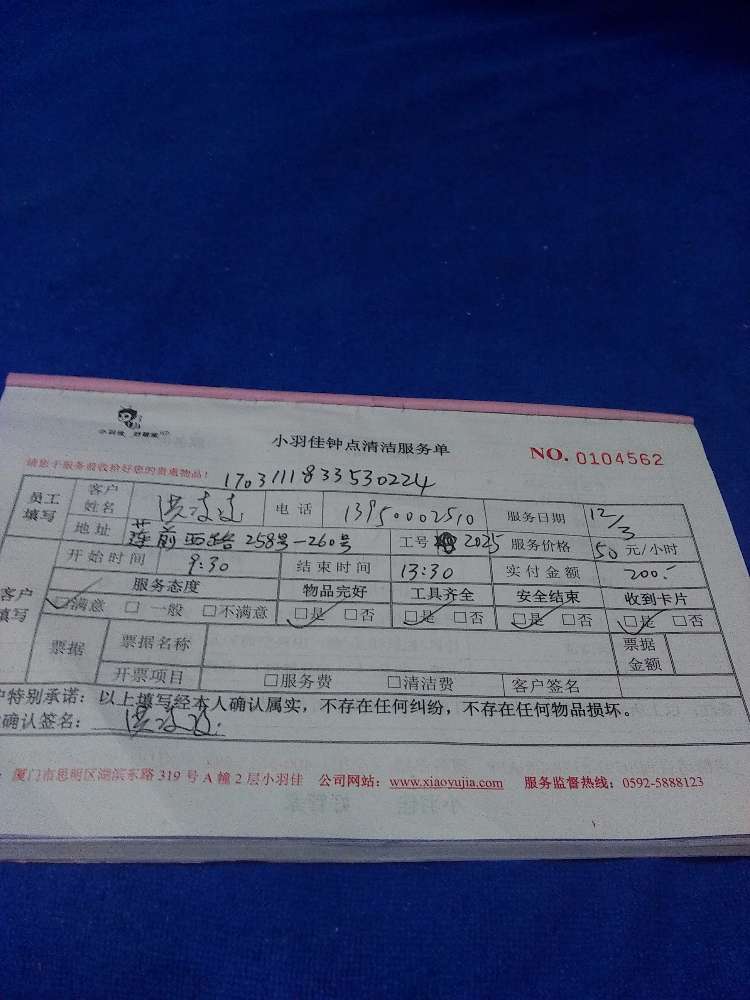 小羽佳 好管家
小羽佳钟点清洁服务单 NO. 0104562
请您于服务前收拾好您的贵重物品! 1703111833530224
员工填写 客户姓名 洪凌凌 电话 13950002510 服务日期 12/3
地址 莲前西路258号-260号 工号 2025 服务价格 50 元/小时
客户填写 开始时间 9:30 结束时间 13:30 实付金额 200.-
服务态度 物品完好 工具齐全 安全结束 收到卡片
☑满意 □一般 □不满意 ☑是 □否 ☑是 □否 ☑是 □否 ☑是 □否
票据 票据名称 票据金额
开票项目 □服务费 □清洁费 客户签名
户特别承诺：以上填写经本人确认属实，不存在任何纠纷，不存在任何物品损坏。
确认签名： 洪凌凌
：厦门市思明区湖滨东路 319 号 A 幢 2 层小羽佳 公司网站：www.xiaoyujia.com 服务监督热线：0592-5888123